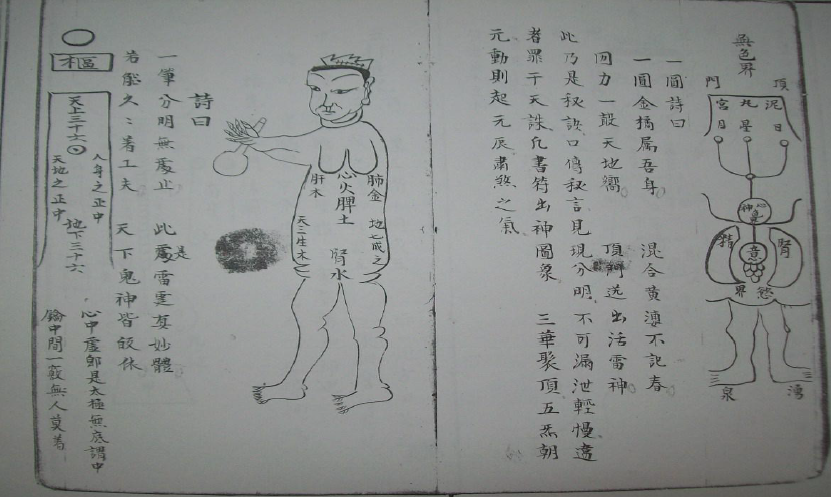 無色界
頂門
泥丸宮
日星月
意
腎
慾界
湧泉
一圓詩曰
一圓金橘屬吾身 混合黃 不記春
回力一 天地嚮 頂 迸出活雷神
此乃是秘訣口傳秘言見現分明不可漏泄輕慢違
者罪干天誅凡書符出神圖象 三華聚頂五炁朝
元動則起元辰肅煞之氣
肺金
地七成之
心火脾土
腎水
肝木
天三生木
詩曰
一筆分明無處止 此處是雷霆真妙體
若能久々著工夫 天下鬼神皆皈休
樞
天上三十六
人身之正中
天地之正中
地下三十六
心中虛即是太極無底謂中
中間一竅無人莫着